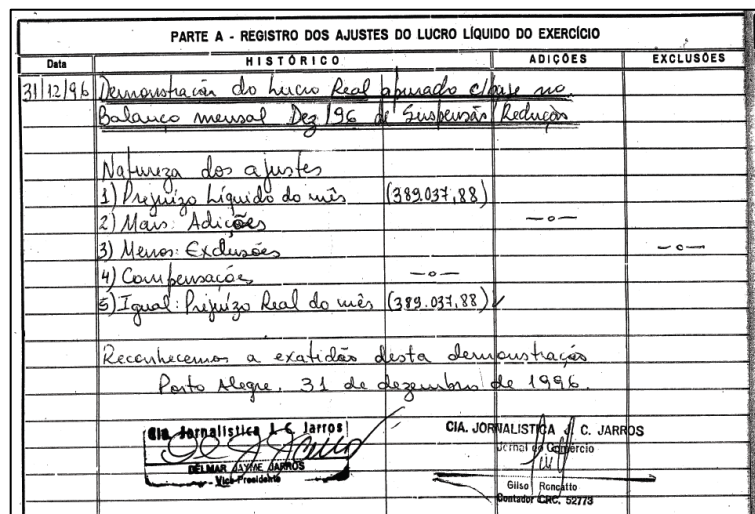 PARTE A - REGISTRO DOS AJUSTES DO LUCRO LÍQUIDO DO EXERCÍCIO
Data HISTÓRICO ADIÇÕES EXCLUSÕES
31/12/96 Demonstração do Lucro Real apurado c/base no
Balanço mensal Dez/96 de Suspensão Redução
Natureza dos ajustes
1) Prejuízo Líquido do mês (389.037,88)
2) Mais: Adições —o—
3) Menos: Exclusões —o—
4) Compensações —o—
5) Igual: Prejuízo Real do mês (389.037,88)
Reconhecemos a exatidão desta demonstração
Porto Alegre, 31 de dezembro de 1996.
Cia. Jornalística J. C. Jarros
DELMAR JAYME JARROS
Vice-Presidente
CIA. JORNALISTICA J. C. JARROS
Jornal do Comércio
Gilso Roncatto
Contador CRC. 52773